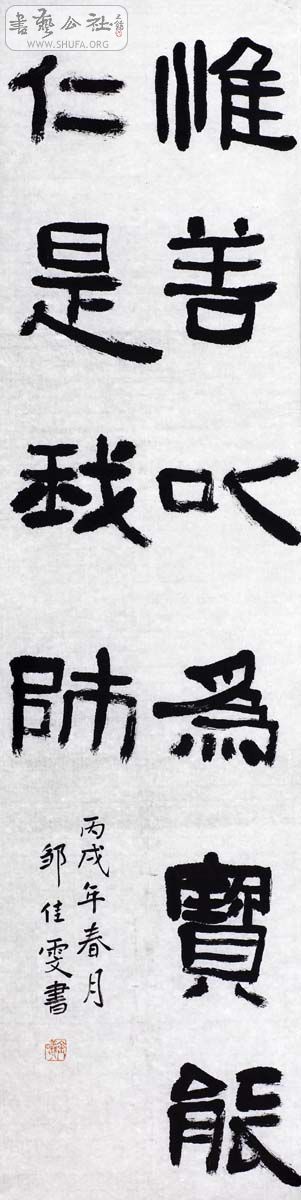 書藝公社
WWW.SHUFA.ORG
惟善以為寶能
仁是我師
丙戌年春月
邹佳雯書